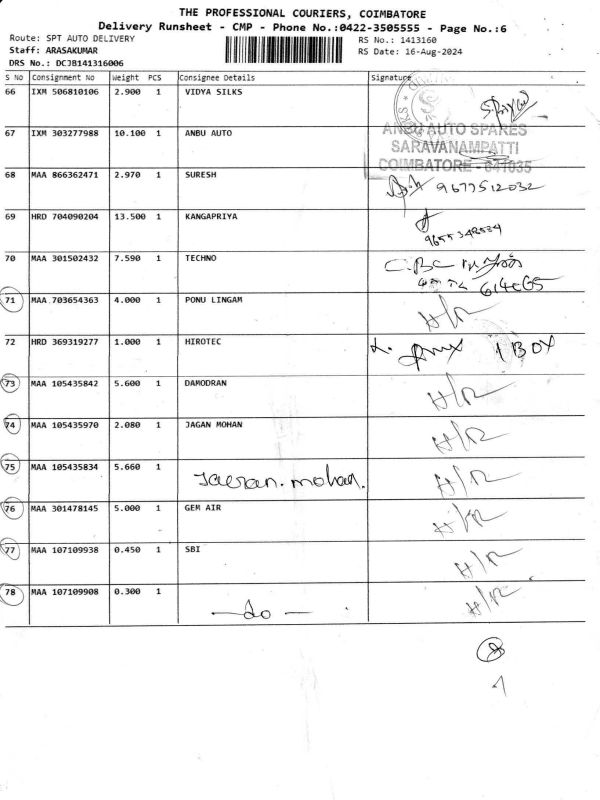 THE PROFESSIONAL COURIERS, COIMBATORE
Delivery Runsheet - CMP - Phone No.:0422-3505555 - Page No.:6
Route: SPT AUTO DELIVERY RS No.: 1413160
Staff: ARASAKUMAR RS Date: 16-Aug-2024
DRS No.: DCJB141316006
S No Consignment No Weight PCS Consignee Details Signature
66 IXM 506810106 2.900 1 VIDYA SILKS
67 IXM 303277988 10.100 1 ANBU AUTO
ANBU AUTO SPARES
SARAVANAMPATTI
COIMBATORE - 641035
68 MAA 866362471 2.970 1 SURESH 9677512032
69 HRD 704090204 13.500 1 KANGAPRIYA
70 MAA 301502432 7.590 1 TECHNO
71 MAA 703654363 4.000 1 PONU LINGAM H/R
72 HRD 369319277 1.000 1 HIROTEC 1 BOX
73 MAA 105435842 5.600 1 DAMODRAN H/R
74 MAA 105435970 2.080 1 JAGAN MOHAN H/R
75 MAA 105435834 5.660 1 H/R
76 MAA 301478145 5.000 1 GEM AIR H/R
77 MAA 107109938 0.450 1 SBI H/R
78 MAA 107109908 0.300 1 —do— H/R